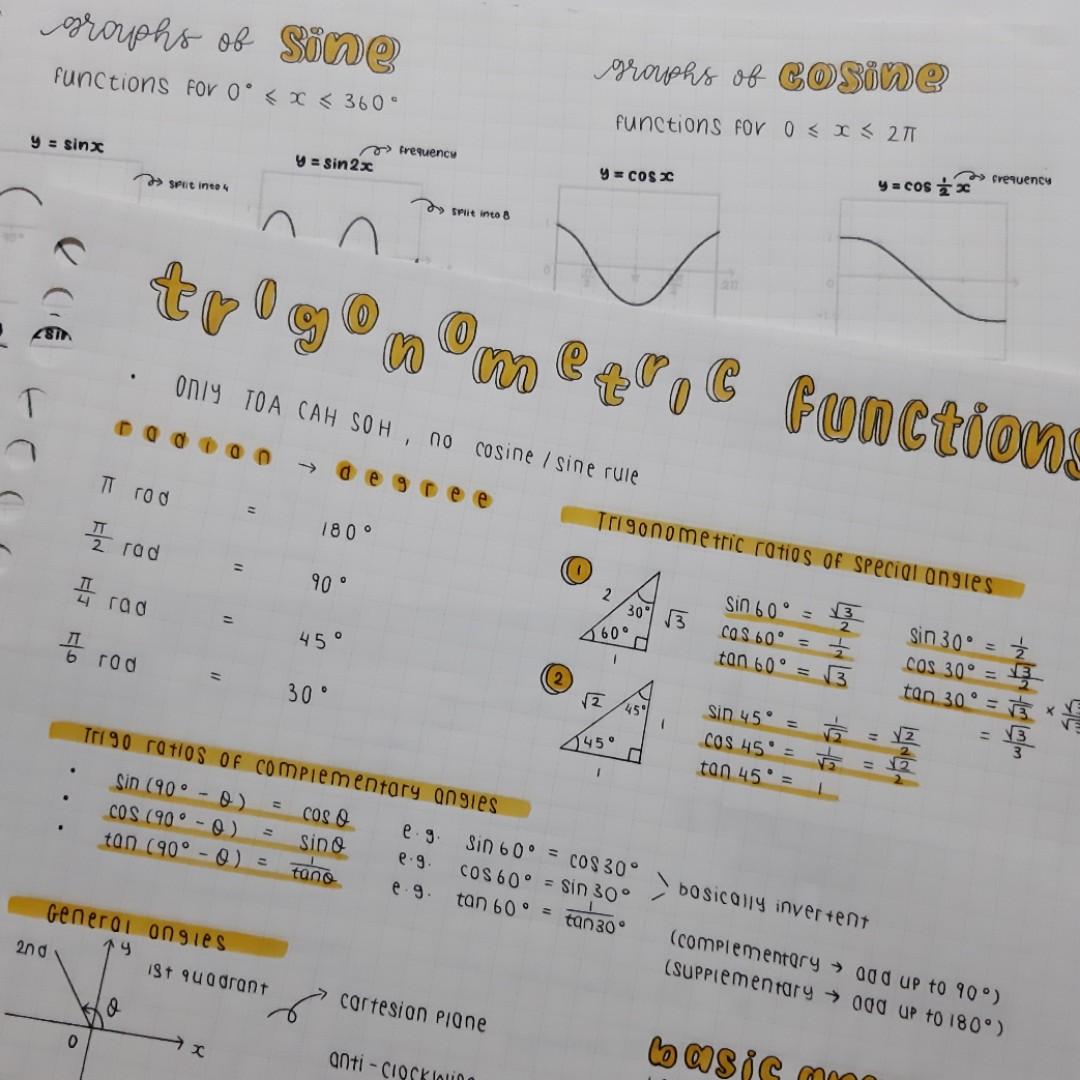 graphs of sine
functions for 0° ⩽ x ⩽ 360°
y = sinx
split into 4
y = sin2x
frequency
split into 8
graphs of cosine
functions for 0 ⩽ x ⩽ 2π
y = cos x
0
2π
y = cos 1/2 x
frequency
0
trigonometric functions
• only TOA CAH SOH, no cosine / sine rule
radian → degree
π rad = 180°
π/2 rad = 90°
π/4 rad = 45°
π/6 rad = 30°
Trigonometric ratios of special angles
1
2
30°
√3
60°
1
sin 60° = √3/2
cos 60° = 1/2
tan 60° = √3
sin 30° = 1/2
cos 30° = √3/2
tan 30° = 1/√3 × √3/√3
= √3/3
2
√2
45°
1
45°
1
sin 45° = 1/√2 = √2/2
cos 45° = 1/√2 = √2/2
tan 45° = 1
Trigo ratios of complementary angles
• sin (90° - θ) = cosθ
• cos (90° - θ) = sinθ
• tan (90° - θ) = 1/tanθ
e.g. sin 60° = cos 30°
e.g. cos 60° = sin 30°
e.g. tan 60° = 1/tan30°
basically invertent
(complementary → add up to 90°)
(supplementary → add up to 180°)
General angles
2nd
y
1st quadrant
θ
0
x
cartesian plane
anti-clockwise
basic